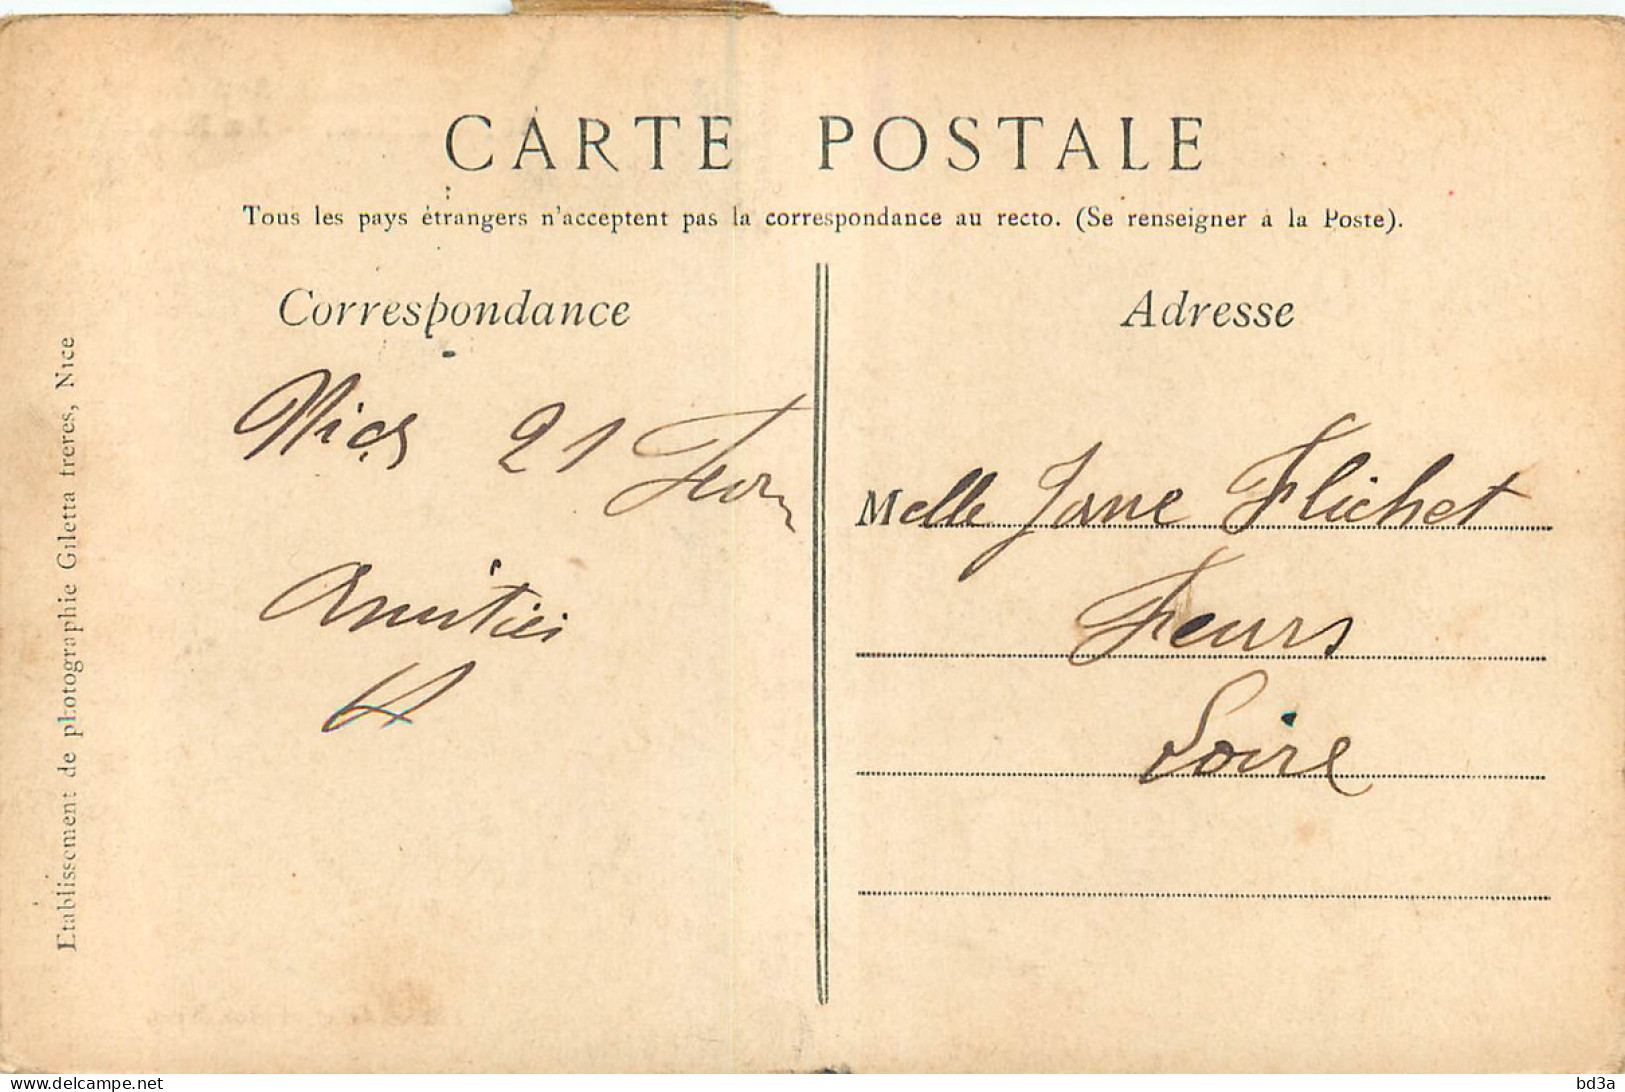 CARTE POSTALE
Tous les pays étrangers n'acceptent pas la correspondance au recto. (Se renseigner à la Poste).
Correspondance
Nice 21 Fevr
Amitiés
Adresse
Melle Jane Flichet
Feurs
Loire
Etablissement de photographie Giletta frères, Nice
bd3a